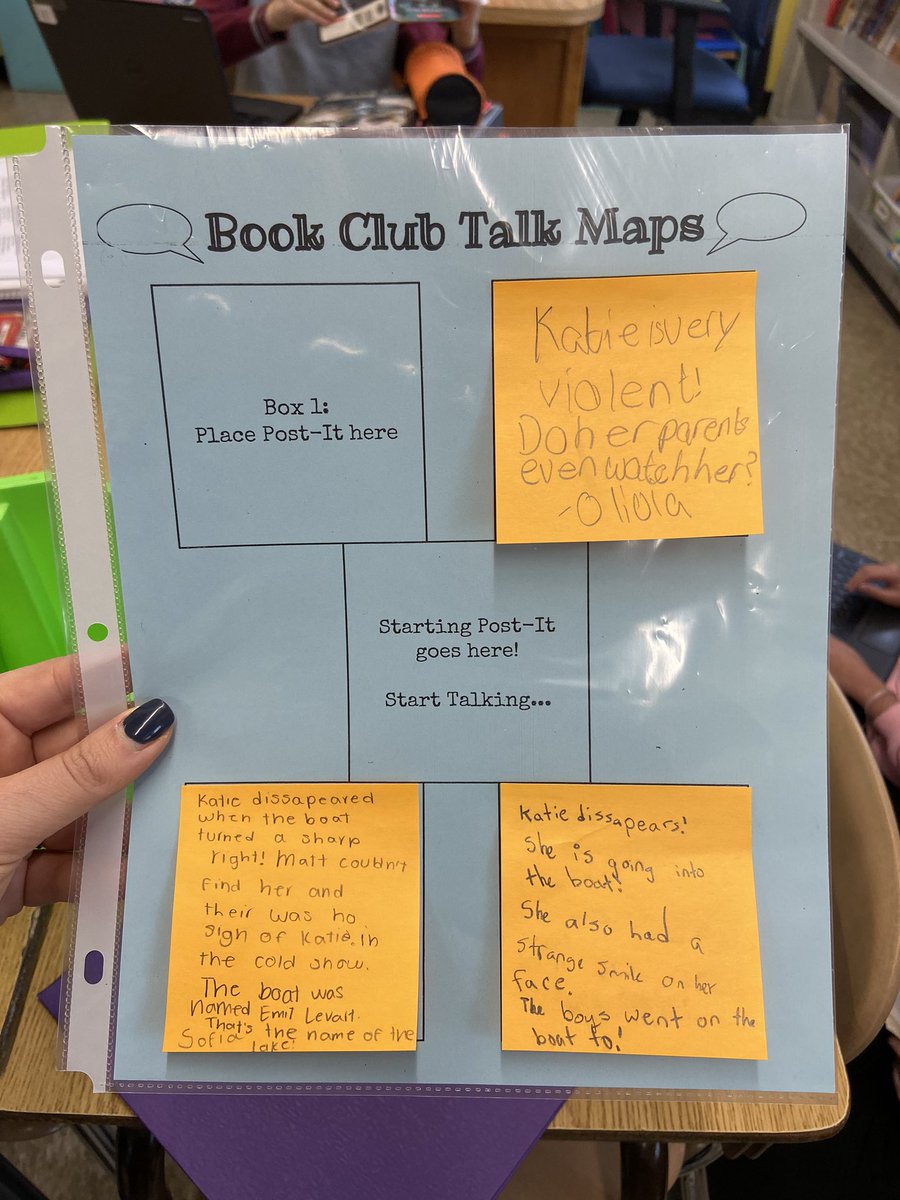 Book Club Talk Maps
Box 1:
Place Post-It here
Katie is very
violent!
Do her parents
even watch her?
-Oliola
Starting Post-It
goes here!
Start Talking...
Katie dissapeared
when the boat
turned a sharp
right! Matt couldn't
find her and
their was no
sign of Katie. in
the cold snow.
The boat was
Named Emil Levait.
That's the name of the
lake!
Sofia
Katie dissapears!
She is going into
the boat!
She also had a
strange smile on her
face.
The boys went on the
boat to!